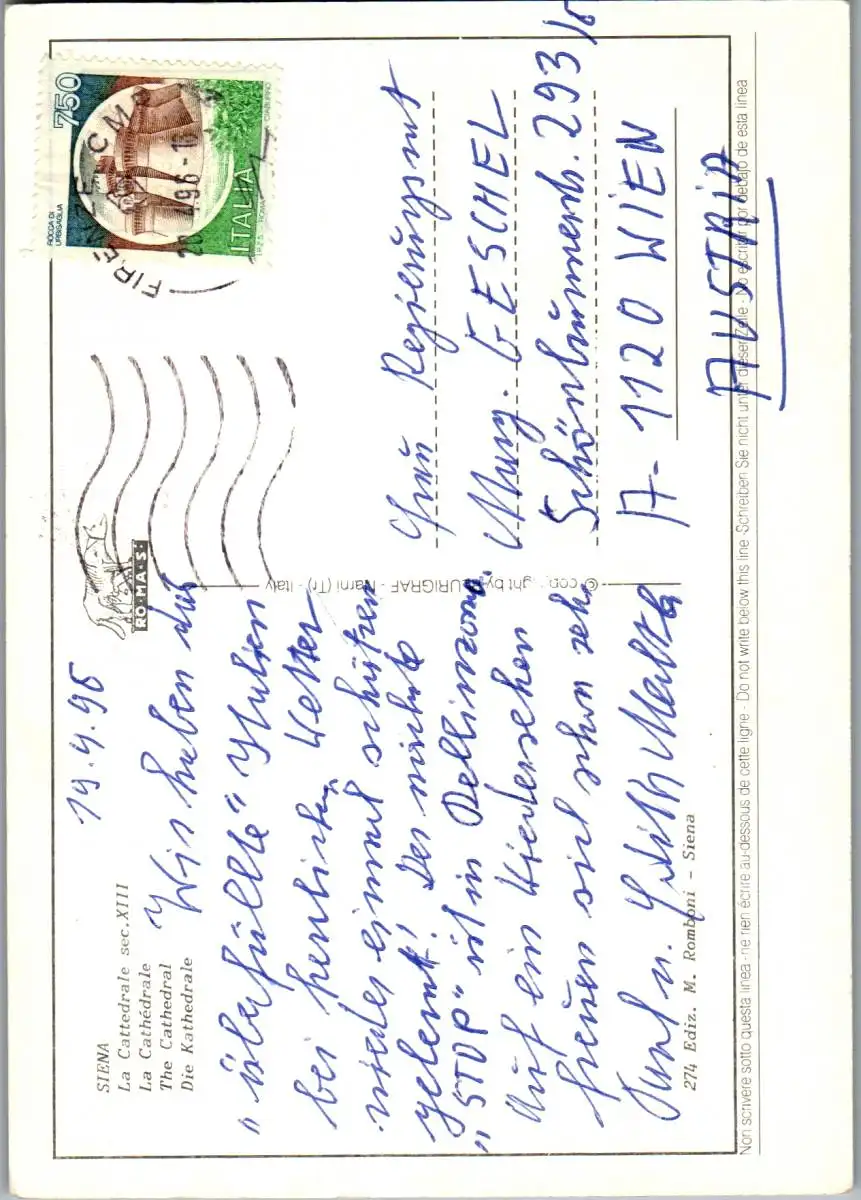 SIENA
La Cattedrale sec. XIII
La Cathédrale
The Cathedral
Die Kathedrale
19.4.96
Wir haben das
„überfüllte“ Italien
bei herrlichem Wetter
wieder einmal schätzen
gelernt! Der nächste
„STOP“ ist in Bellinzona.
Auf ein Wiedersehen
freuen sich schon sehr
u. Edith
274 Ediz. M. Romboni - Siena
RO·MA·S·
© copyright by PLURIGRAF - Narni (Tr) - Italy
750
ROCCA DI
URBISAGLIA
ITALIA
I.P.Z.S. ROMA
FIRENZE CMP
4.96-16
Frau Regierungsrat
Marg. GESCHEL
Schönbrunnerstr. 293/6
A-1120 WIEN
AUSTRIA
Non scrivere sotto questa linea - ne rien écrire au-dessous de cette ligne - Do not write below this line - Schreiben Sie nicht unter dieser Zeile - No escribir por debajo de esta línea